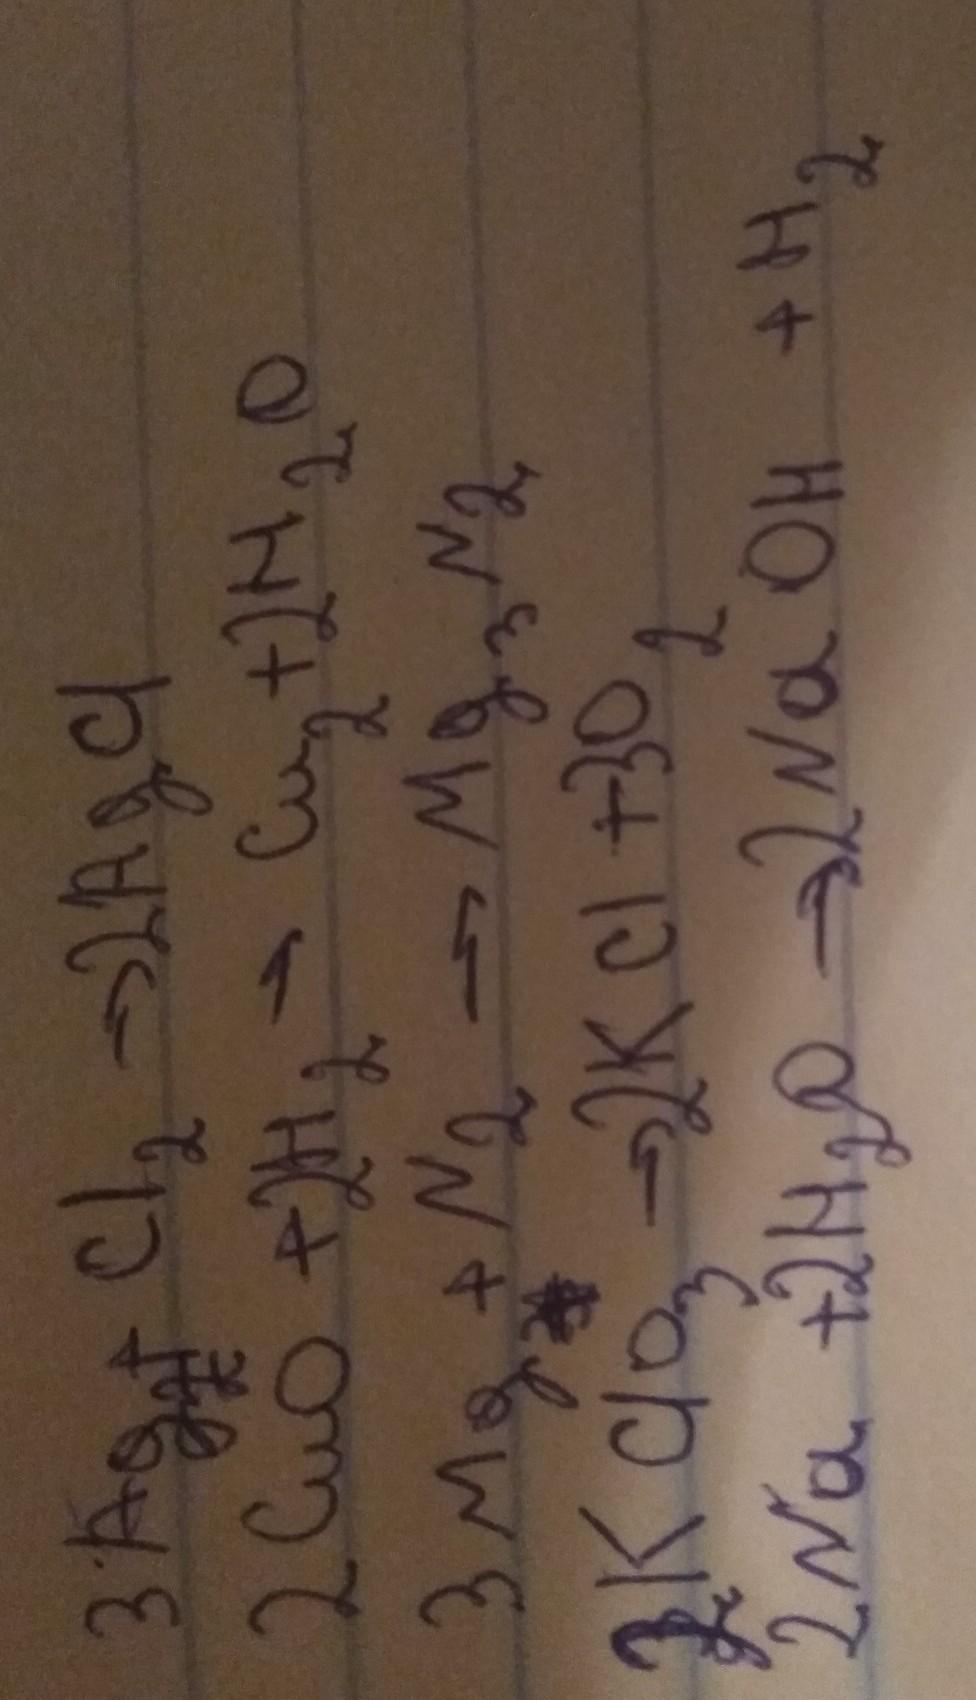 3Ag + Cl₂ → 2AgCl
2CuO + 2H₂ → Cu₂ + 2H₂O
3Mg + N₂ → Mg₃N₂
2KClO₃ → 2KCl + 3O₂
2Na + 2H₂O → 2NaOH + H₂